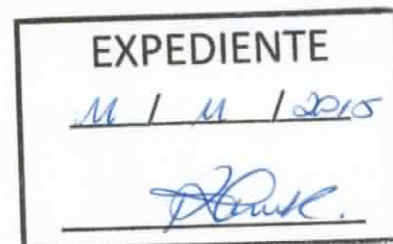 EXPEDIENTE
11 / 11 / 2015